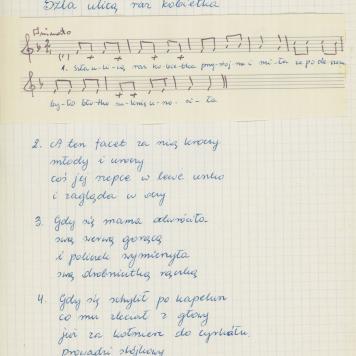 Szła ulicą raz kobietka
1. Szła u-li-cą raz ko-bie-tka przy-stoj-na i mi-ła
by-ło błotko su-knię u-no-si-ła
2. A ten facet za nią kroczy
młody i uroczy
coś jej szepce w lewe uszko
i zagląda w oczy
3. Gdy się mama odwróciła
swą gorącą
i policzek wymierzyła
swą drobniutką rączką
4. Gdy się schylił po kapelusz
co mu zleciał z głowy
już za kołnierz do cyrkułu
prowadzi stójkowy